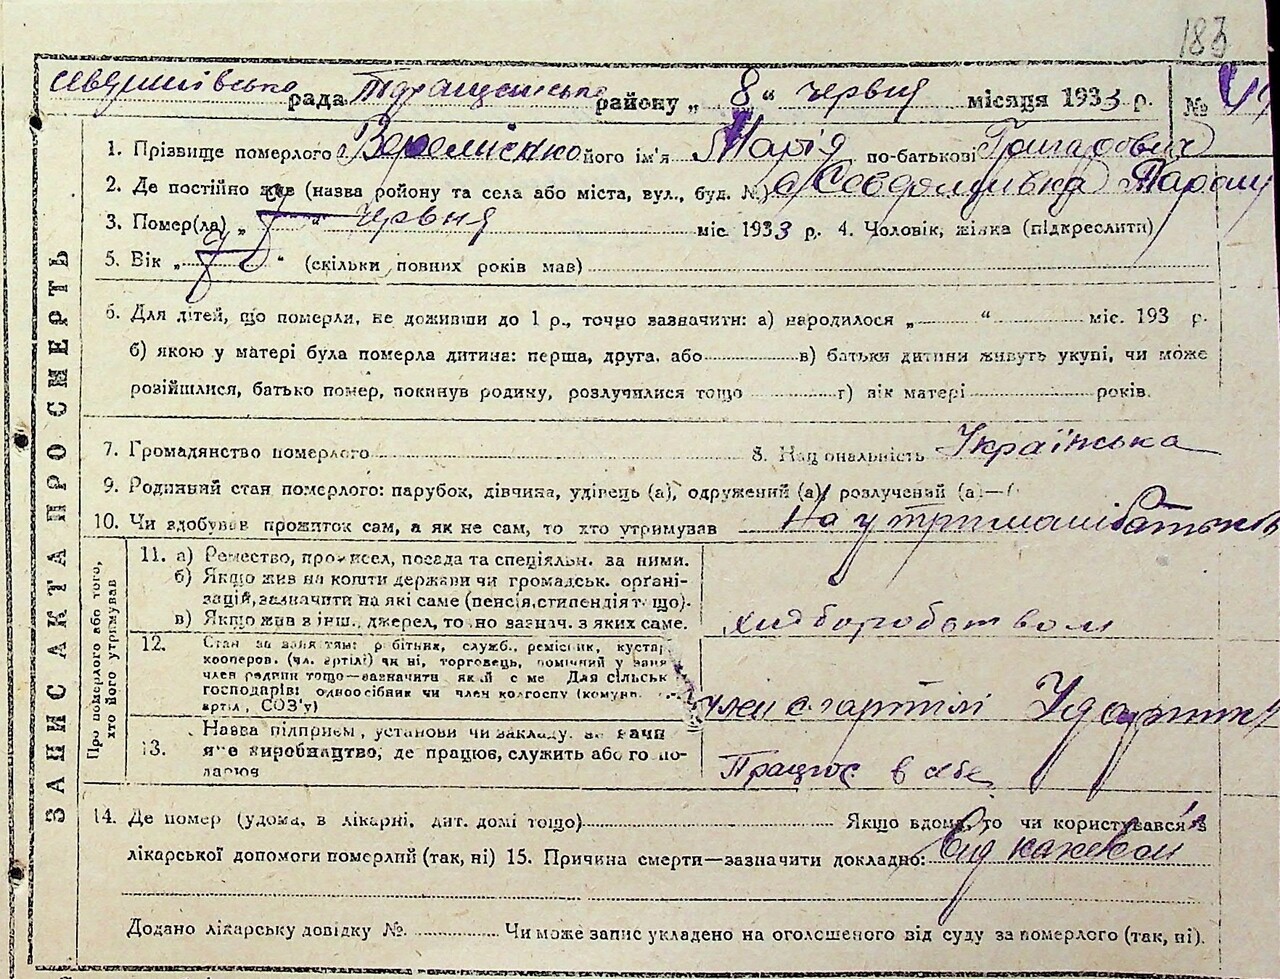 183
рада Таращанського району „ 8 “ червня місяця 1933 р. №
1. Прізвище померлого Веремієнко його ім'я Марія по-батькові Григорович
2. Де постійно жив (назва ройону та села або міста, вул., буд. №)
3. Помер(ла) „ 8 “ червня міс. 1933 р. 4. Чоловік, жінка (підкреслити)
5. Вік „ 8 “ (скільки повних років мав)
6. Для дітей, що померли, не доживши до 1 р., точно зазначити: а) народилося „ “ міс. 193 р.
б) якою у матері була померла дитина: перша, друга, або в) батьки дитини живуть укупі, чи може
розійшлися, батько помер, покинув родину, розлучилися тощо г) вік матері років.
7. Громадянство померлого 8. Національність Українська
9. Родинний стан померлого: парубок, дівчина, удівець (а), одружений (а), розлучений (а)—
10. Чи здобував прожиток сам, а як не сам, то хто утримував На утримані батьків
ЗАПИС АКТА ПРО СМЕРТЬ
Про померлого або того, хто його утримував
11. а) Ремество, промисел, посада та спеціяльн. за ними.
б) Якщо жив на кошти держави чи громадськ. орґані-
зацій, зазначити на які саме (пенсія, стипендія тощо).
в) Якщо жив з інш. джерел, точно зазнач. з яких саме.
хліборобством
12. Стан за заняттям: робітник, служб., ремісник, кустар
кооперов. (чл. артілі) чи ні, торговець, помічний у занят
член родини тощо—зазначити який саме Для сільськ
господарів: одноосібник чи член колгоспу (комуни,
артіл, СОЗ'у)
член с артілі Ударник
13. Назва підприєм, установи чи закладу,
виробництво, де працює, служить або го по-
Працює в себе
14. Де помер (удома, в лікарні, дит. домі тощо) Якщо вдома, то чи користувався з
лікарської допомоги померлий (так, ні) 15. Причина смерти—зазначити докладно: Від
Додано лікарську довідку №. Чи може запис укладено на оголошеного від суду за померлого (так, ні).